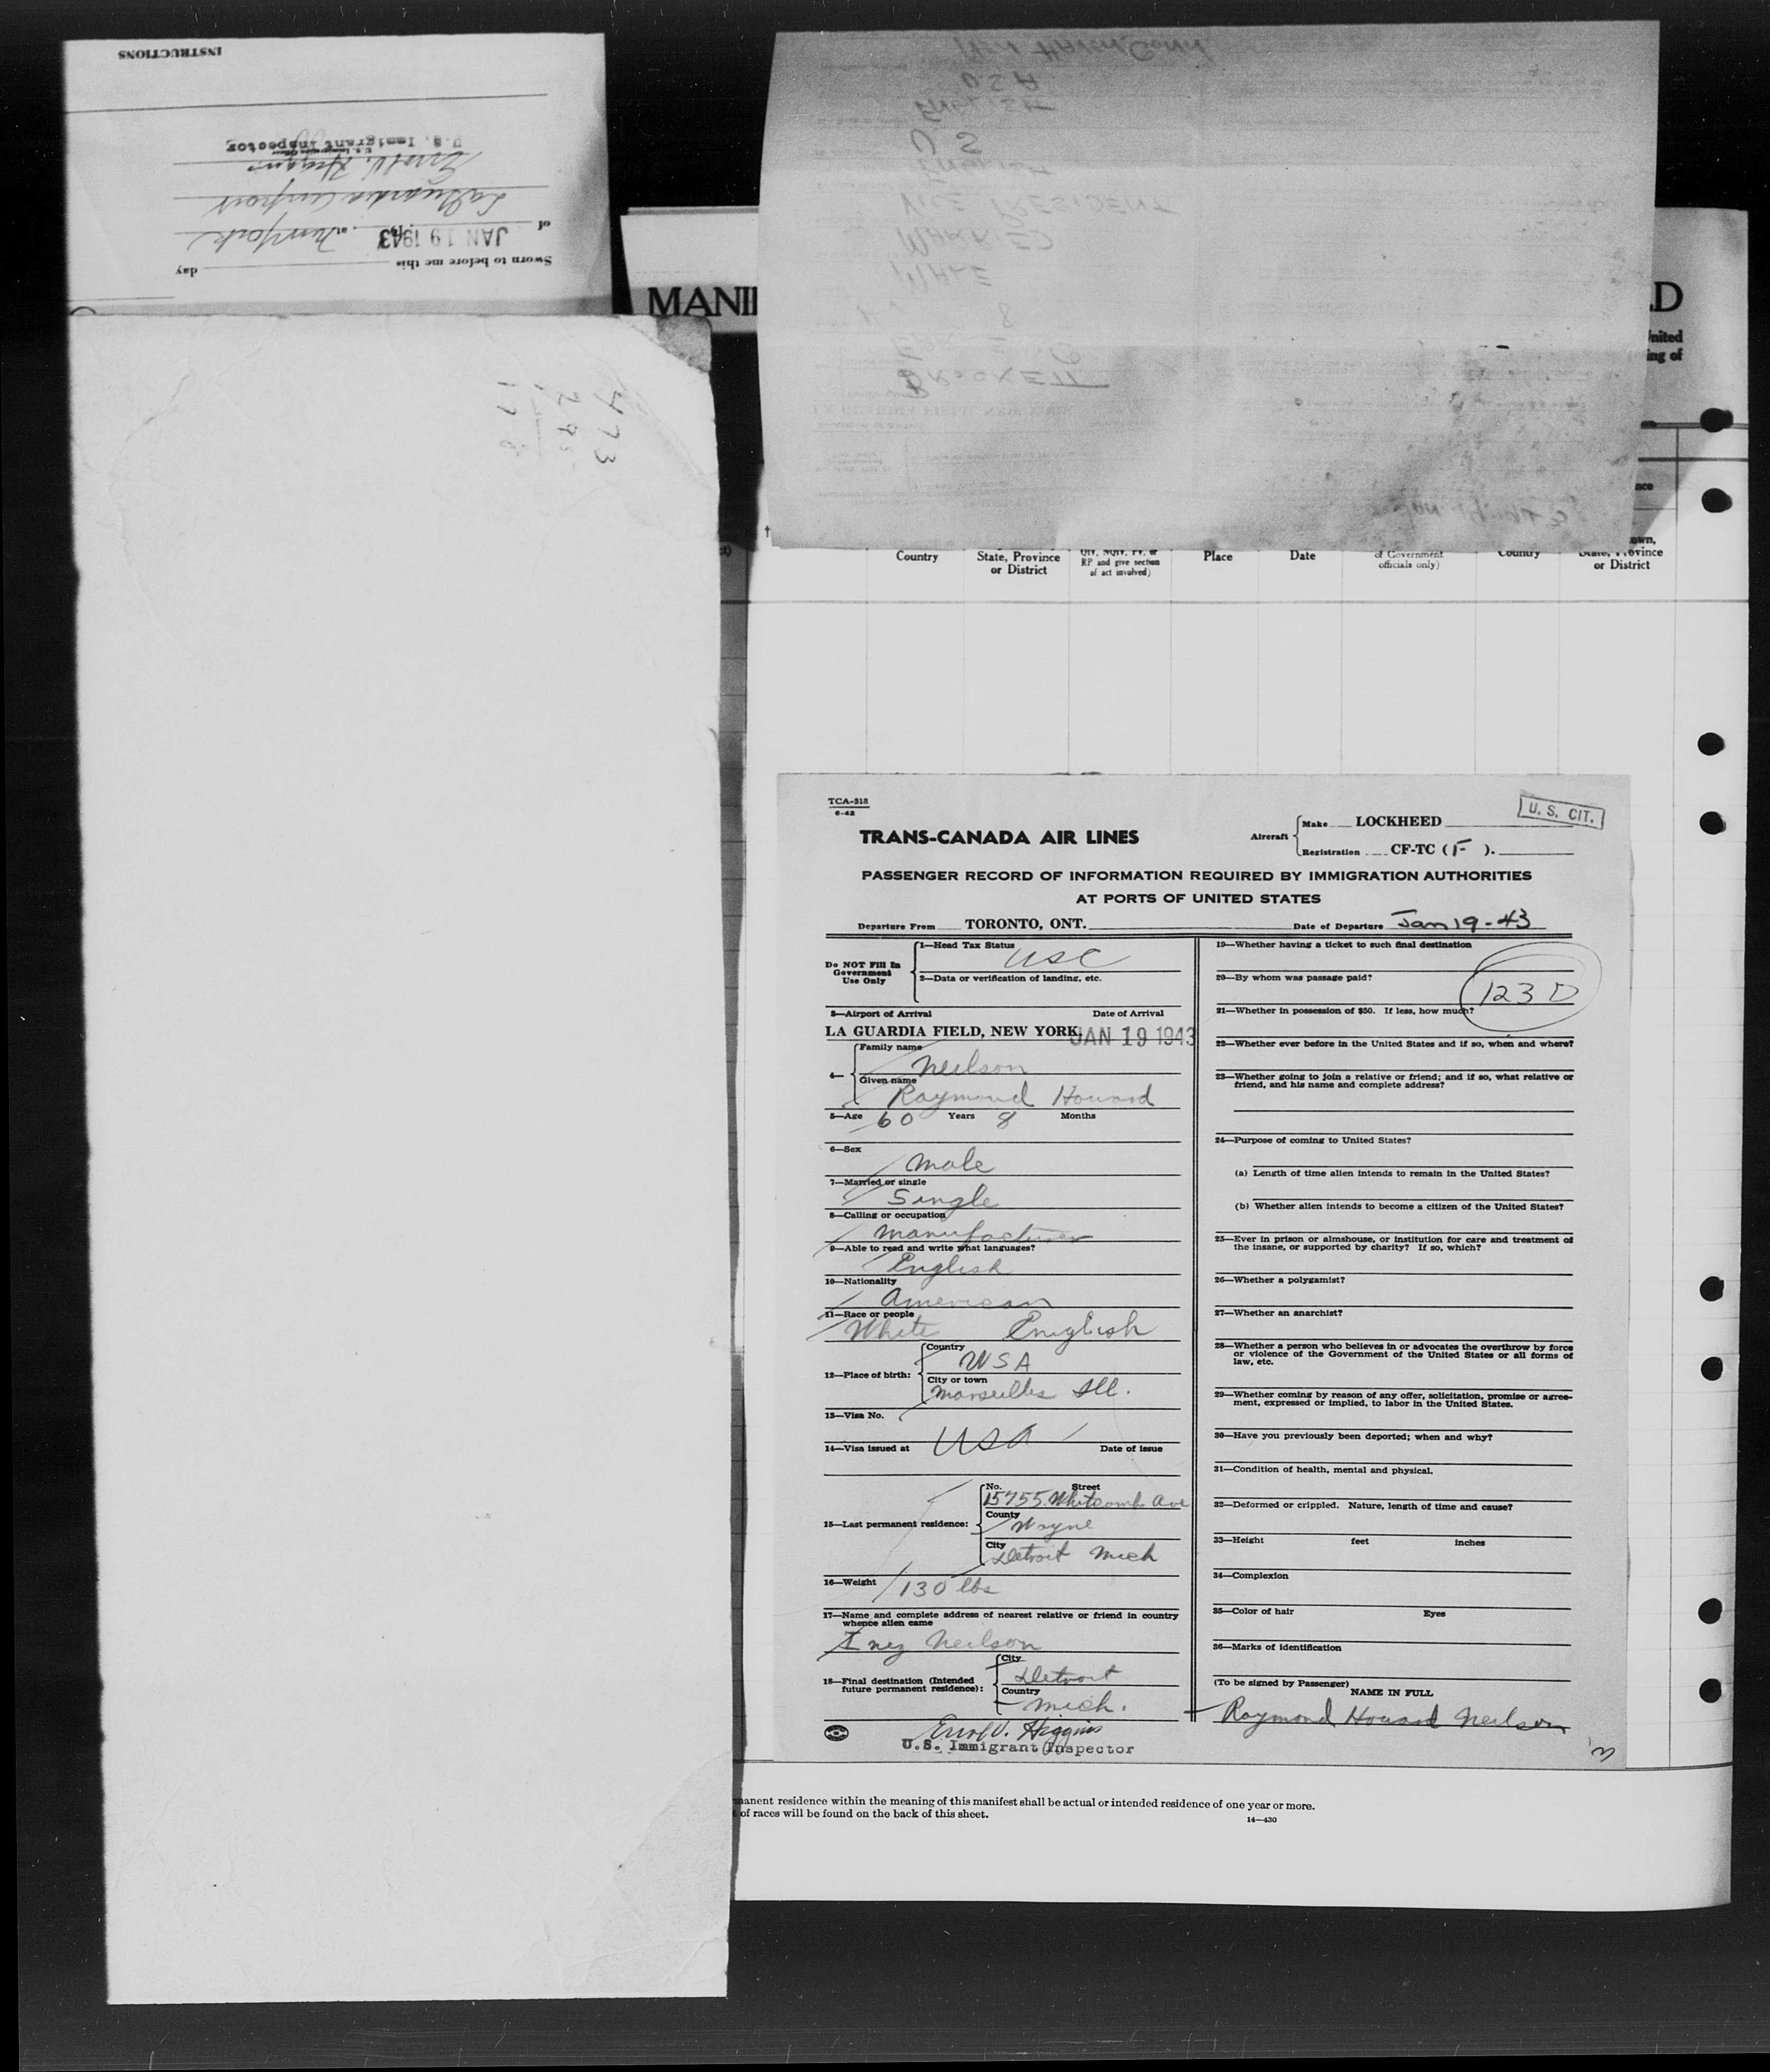 INSTRUCTIONS
U.S. Immigrant Inspector
Errol V. Higgins
La Guardia Airport
of JAN 19 1943, at New York
Sworn to before me this day
MANI
LD
United
ing of
New Haven Conn
U.S.A
ENGLISH
U S
ENGLISH
VICE PRESIDENT
MARRIED
MALE
8
BROCKETT
nce
Country
State, Province
or District
QIV, NQIV, PV, or
RP and give section
of act involved)
Place
Date
of Government
officials only)
Country
own,
State, Province
or District
TCA-518
6-42
U. S. CIT.
TRANS-CANADA AIR LINES
Aircraft
Make LOCKHEED
Registration CF-TC ( F ).
PASSENGER RECORD OF INFORMATION REQUIRED BY IMMIGRATION AUTHORITIES
AT PORTS OF UNITED STATES
Departure From TORONTO, ONT. Date of Departure Jan 19-43
Do NOT Fill In
Government
Use Only
1—Head Tax Status
USC
2—Data or verification of landing, etc.
3—Airport of Arrival Date of Arrival
LA GUARDIA FIELD, NEW YORK JAN 19 1943
4—
Family name
Neilson
Given name
Raymond Howard
5—Age 60 Years 8 Months
6—Sex
male
7—Married or single
Single
8—Calling or occupation
manufacturer
9—Able to read and write what languages?
English
10—Nationality
American
11—Race or people
White English
12—Place of birth:
Country
USA
City or town
Marseilles Ill.
13—Visa No.
14—Visa issued at USA Date of issue
15—Last permanent residence:
No. Street
15755 Whitcomb Ave
County
Wayne
City
Detroit Mich
16—Weight 130 lbs
17—Name and complete address of nearest relative or friend in country
whence alien came
Inez Neilson
18—Final destination (Intended
future permanent residence):
City
Detroit
Country
Mich.
Errol V. Higgins
U.S. Immigrant Inspector
19—Whether having a ticket to such final destination
20—By whom was passage paid?
123 D
21—Whether in possession of $50. If less, how much?
22—Whether ever before in the United States and if so, when and where?
23—Whether going to join a relative or friend; and if so, what relative or
friend, and his name and complete address?
24—Purpose of coming to United States?
(a) Length of time alien intends to remain in the United States?
(b) Whether alien intends to become a citizen of the United States?
25—Ever in prison or almshouse, or institution for care and treatment of
the insane, or supported by charity? If so, which?
26—Whether a polygamist?
27—Whether an anarchist?
28—Whether a person who believes in or advocates the overthrow by force
or violence of the Government of the United States or all forms of
law, etc.
29—Whether coming by reason of any offer, solicitation, promise or agree-
ment, expressed or implied, to labor in the United States.
30—Have you previously been deported; when and why?
31—Condition of health, mental and physical.
32—Deformed or crippled. Nature, length of time and cause?
33—Height feet inches
34—Complexion
35—Color of hair Eyes
36—Marks of identification
(To be signed by Passenger)
NAME IN FULL
Raymond Howard Neilson
manent residence within the meaning of this manifest shall be actual or intended residence of one year or more.
of races will be found on the back of this sheet.
14—430